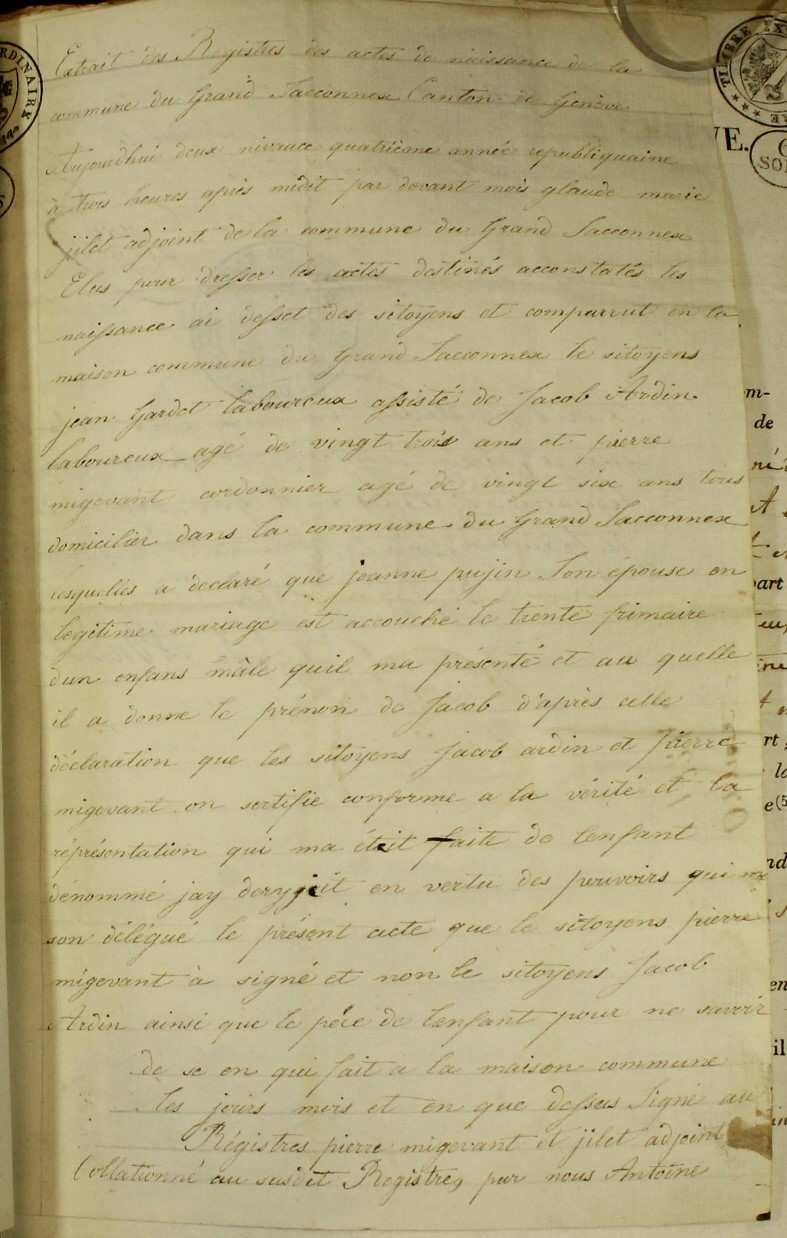 Extrait des Registres des actes de naissance de la
commune du Grand Sacconnex Canton de Genève.
Aujourdhui deux nivauce quatrieme année republiquaine
à trois heures après midit par devant mois glaude marie
jilet adjoint de la commune du Grand Sacconnex
Elus pour dresser les actes destinés acconstatés les
naissance ai desset des sitoyens et comparrut en la
maison commune du Grand Sacconnex le sitoyens
jean Gardet laboureux assisté de Jacob Ardin
laboureux agé de vingt trois ans et pierre
migevant cordonnier agé de vingt six ans tous
domicilier dans la commune du Grand Sacconnex
lesquelés a declaré que jeanne pujin son épouse en
legitime mariage est accouché le trente frimaire
dun enfans mâle quil ma présenté et au quelle
il a donne le prénon de Jacob d'après celle
déclaration que les sitoyens Jacob ardin et pierre
migevant on sertifie conforme a la vérité et la
réprésentation qui ma étèit faite de lenfant
denommé jay deryjèit en vertu des pouvoirs qui me
son délégué le présent acte que le sitoyens pierre
migevant à signé et non le sitoyens Jacob
Ardin ainsi que le père de lenfant pour ne savoir
de se en qui fait a la maison commune
les jours mois et en que dessus Signé au
Régistres pierre migevant et jilet adjoint
Collationné au susdit Registre, par nous Antoine